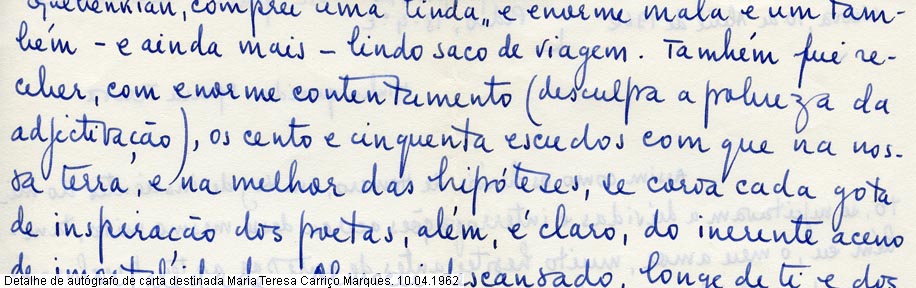 comprei uma linda, e enorme mala e um tam-
bém – e ainda mais – lindo saco de viagem. Também fui re-
ceber, com enorme contentamento (desculpa a pobreza da
adjectivação), os cento e cinquenta escudos com que na nos-
sa terra, e na melhor das hipóteses, se coroa cada gota
de inspiração dos poetas, além, é claro, do inerente aceno
de longe de ti e dos
Detalhe de autógrafo de carta destinada Maria Teresa Carriço Marques. 10.04.1962